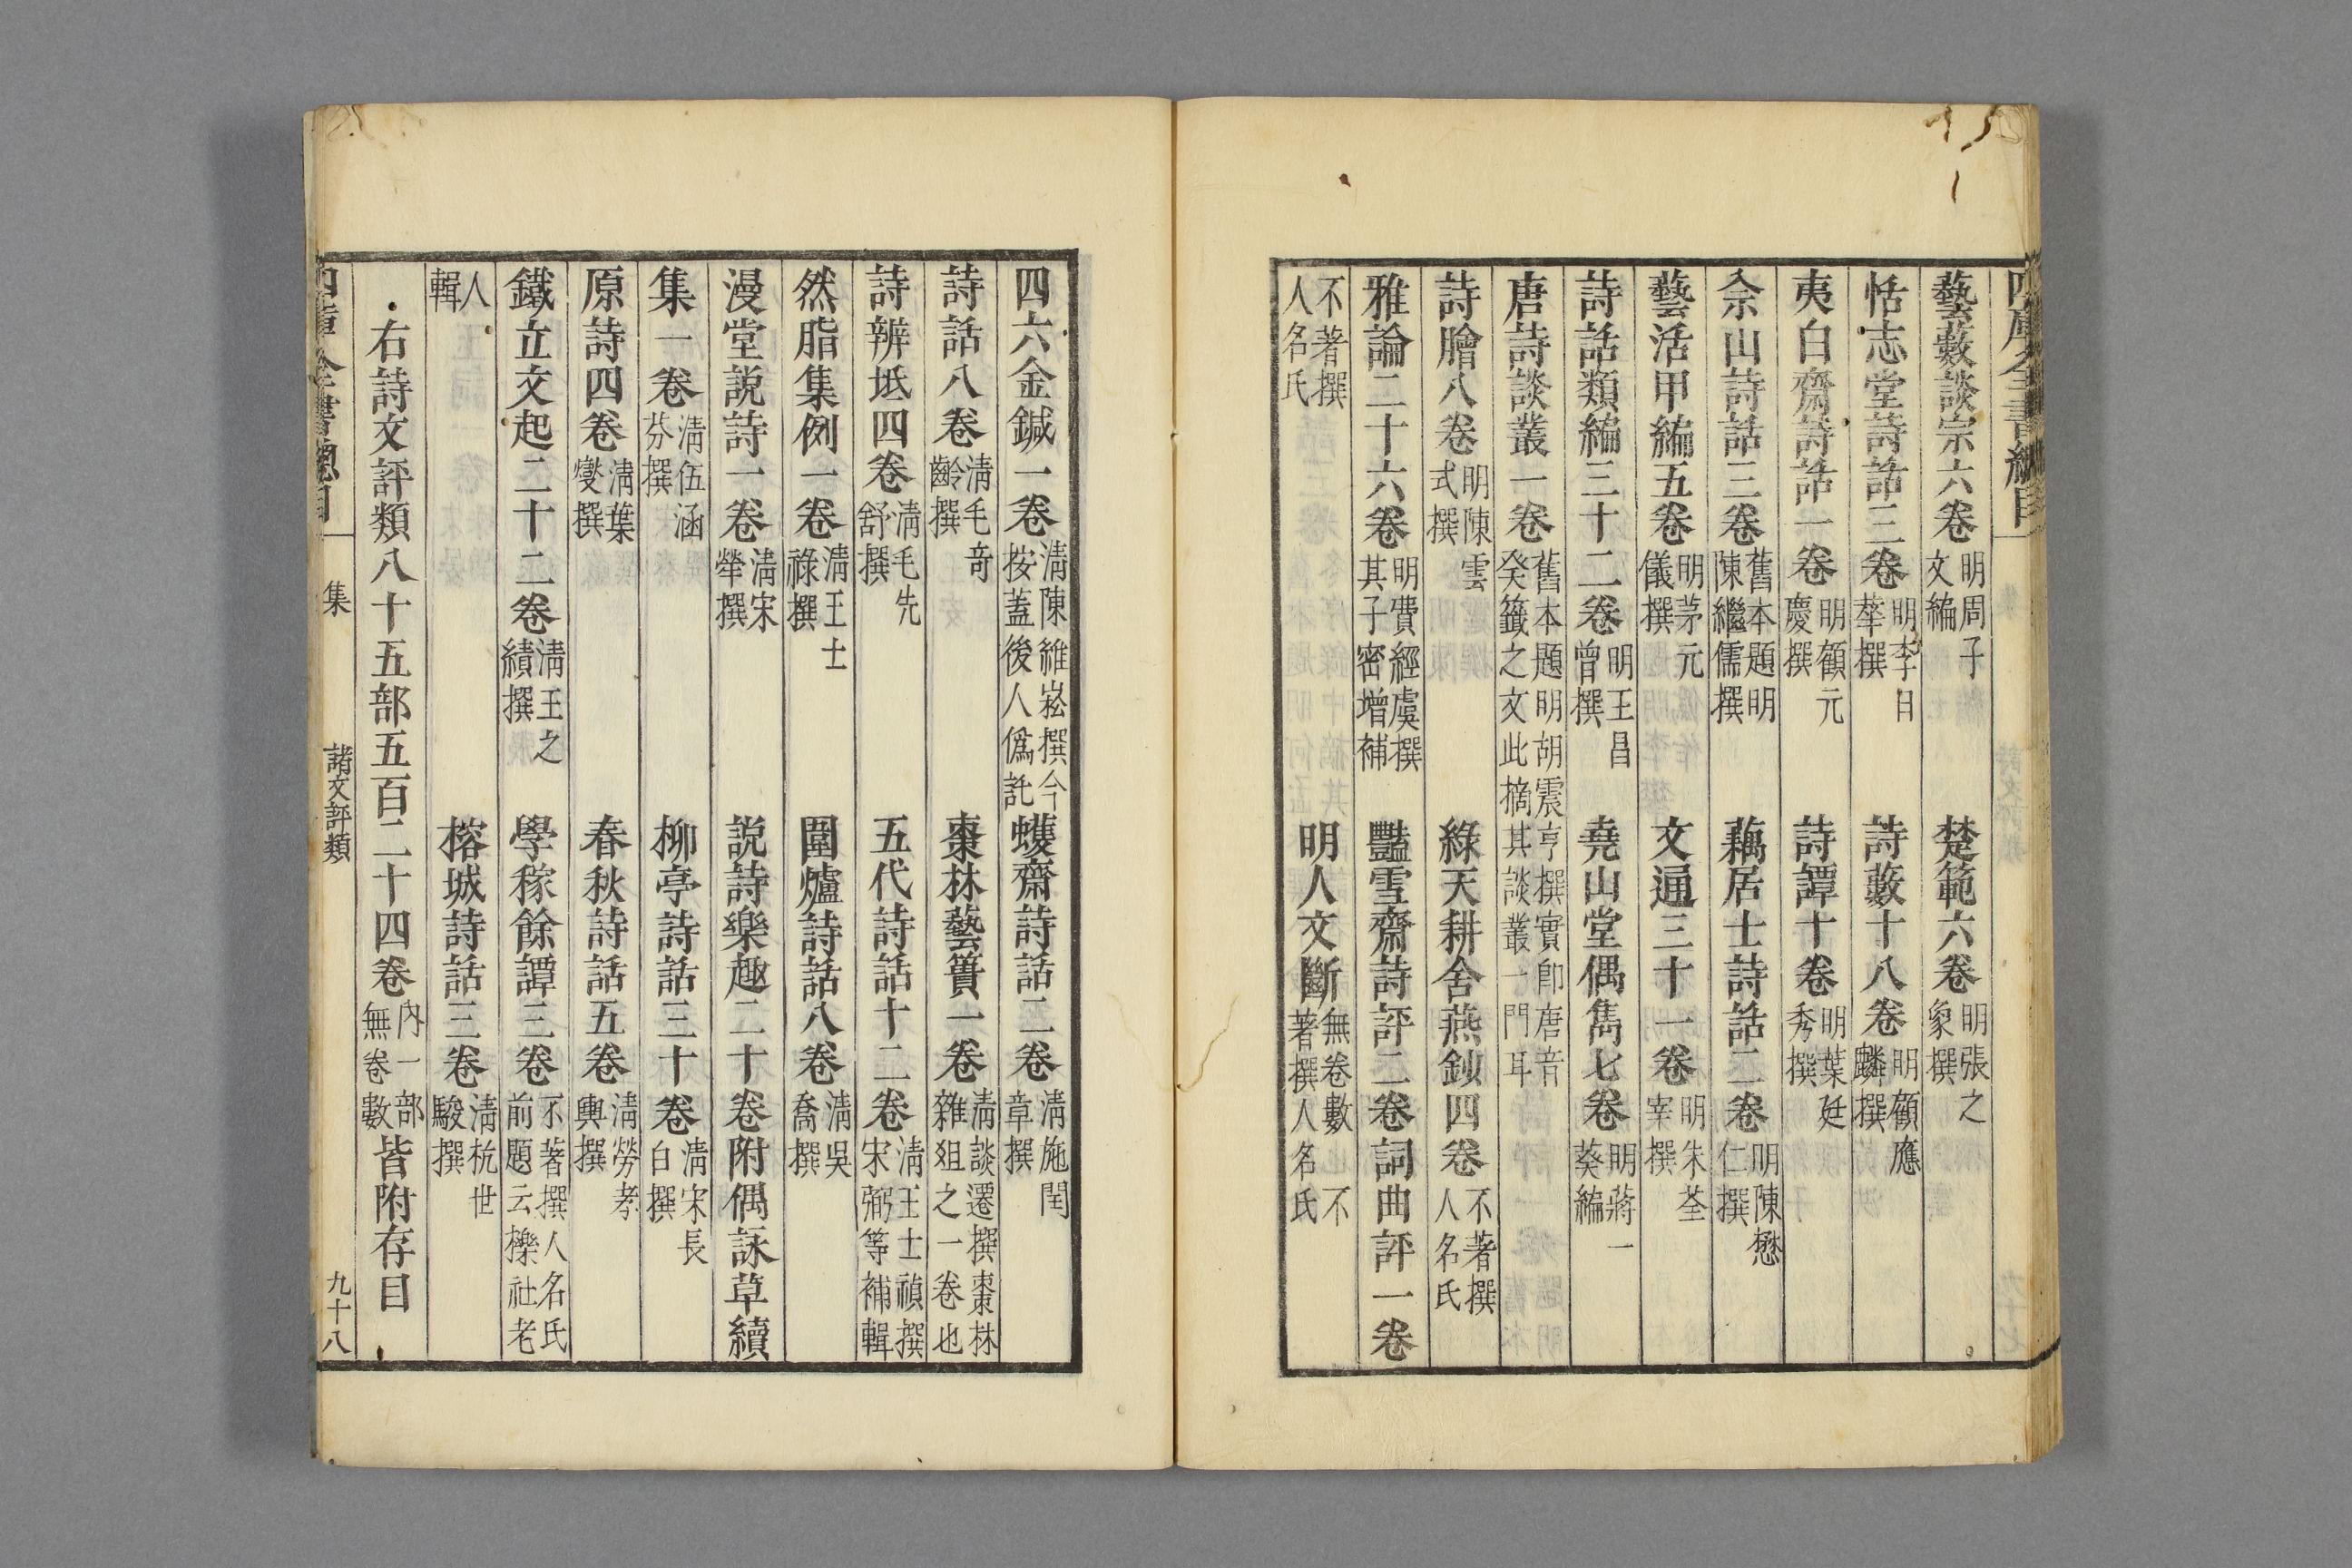 藝藪談宗六卷 明周子文編 楚範六卷 明張之象撰
恬志堂詩話三卷 明李日華撰 詩藪十八卷 明顧應麟撰
夷白齋詩話一卷 明顧元慶撰 詩譚十卷 明葉廷秀撰
佘山詩話三卷 舊本題明陳繼儒撰 藕居士詩話二卷 明陳懋仁撰
藝活甲編五卷 明茅元儀撰 文通三十一卷 明朱荃宰撰
詩話類編三十二卷 明王昌曾撰 堯山堂偶雋七卷 明蔣一葵編
唐詩談叢一卷 舊本題明胡震亨撰實卽唐音癸籤之文此摘其談叢一門耳
詩膾八卷 明陳雲式撰 綠天耕舍燕鈔四卷 不著撰人名氏
雅論二十六卷 明費經虞撰其子密增補 豔雪齋詩評二卷詞曲評一卷
不著撰人名氏 明人文斷 無卷數不著撰人名氏
四六金鍼一卷 淸陳維崧撰今按蓋後人僞託 蠖齋詩話二卷 淸施閏章撰
詩話八卷 淸毛奇齡撰 棗林藝簣一卷 淸談遷撰棗林雜俎之一卷也
詩辨坻四卷 淸毛先舒撰 五代詩話十二卷 淸王士禎撰宋弼等補輯
然脂集例一卷 淸王士祿撰 圍爐詩話八卷 淸吳喬撰
漫堂說詩一卷 淸宋犖撰 說詩樂趣二十卷附偶詠草續
集一卷 淸伍涵芬撰 柳亭詩話三十卷 淸宋長白撰
原詩四卷 淸葉燮撰 春秋詩話五卷 淸勞孝輿撰
鐵立文起二十二卷 淸王之績撰 學稼餘譚三卷 不著撰人名氏前題云櫟社老
人輯 榕城詩話三卷 淸杭世駿撰
右詩文評類八十五部五百二十四卷 內一部無卷數 皆附存目
四庫全書總目 集 諸文評類 九十八